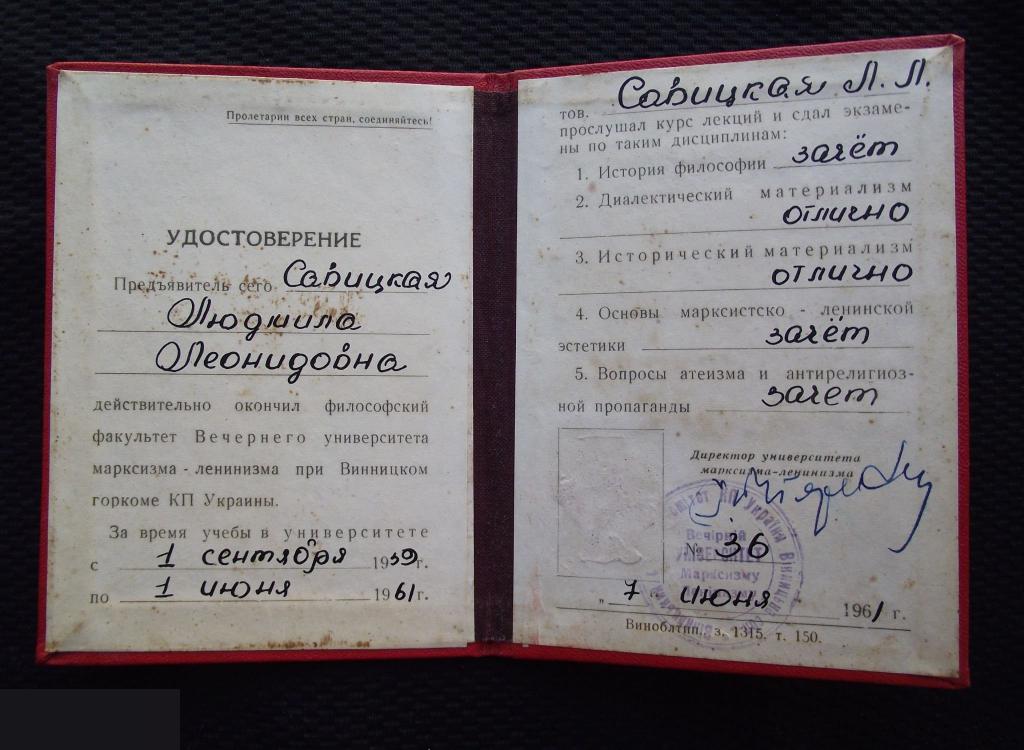 Пролетарии всех стран, соединяйтесь!
УДОСТОВЕРЕНИЕ
Предъявитель сего Савицкая
Людмила
Леонидовна
действительно окончил философский
факультет Вечернего университета
марксизма - ленинизма при Винницком
горкоме КП Украины.
За время учебы в университете
с 1 сентября 1959г.
по 1 июня 1961г.
тов. Савицкая Л. Л.
прослушал курс лекций и сдал экзаме-
ны по таким дисциплинам:
1. История философии зачёт
2. Диалектический материализм
отлично
3. Исторический материализм
отлично
4. Основы марксистско - ленинской
эстетики зачёт
5. Вопросы атеизма и антирелигиоз-
ной пропаганды зачет
Директор университета
марксизма-ленинизма
№ 36
Вечірній
УНІВЕРСИТЕТ
Марксизму
"7 июня 1961 г.
Виноблтип. з. 1315. т. 150.